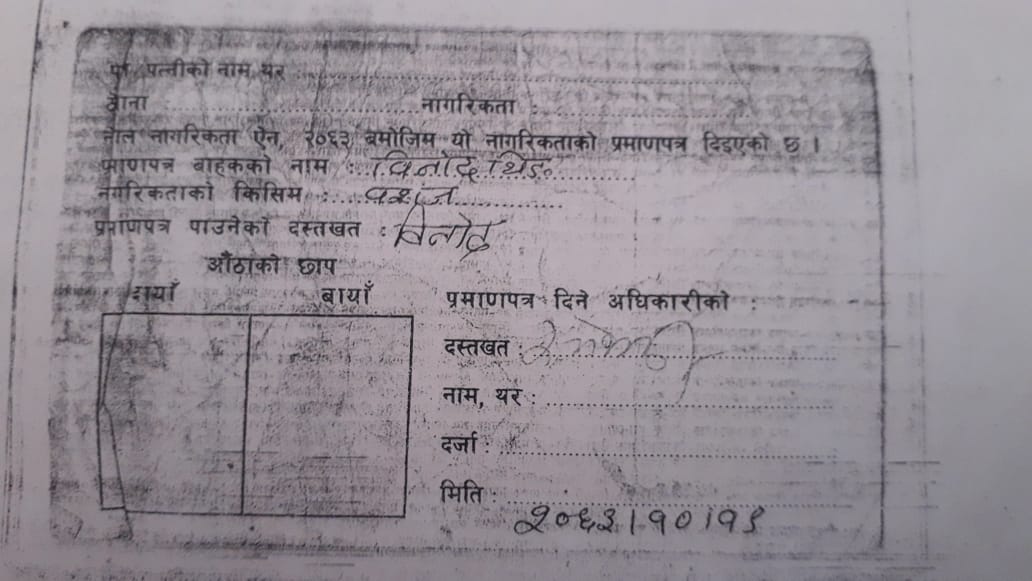 पत्नीको नाम, थर :
नागरिकता :
नागरिकता ऐन, २०६३ बमोजिम यो नागरिकताको प्रमाणपत्र दिइएको छ ।
प्रमाणपत्र बाहकको नाम : विनोद थिङ
नागरिकताको किसिम : वंशज
प्रमाणपत्र पाउनेको दस्तखत : विनोद
औंठाको छाप
दायाँ बायाँ
प्रमाणपत्र दिने अधिकारीको :
दस्तखत :
नाम, थर :
दर्जा :
मिति :
२०६३।१०।१९